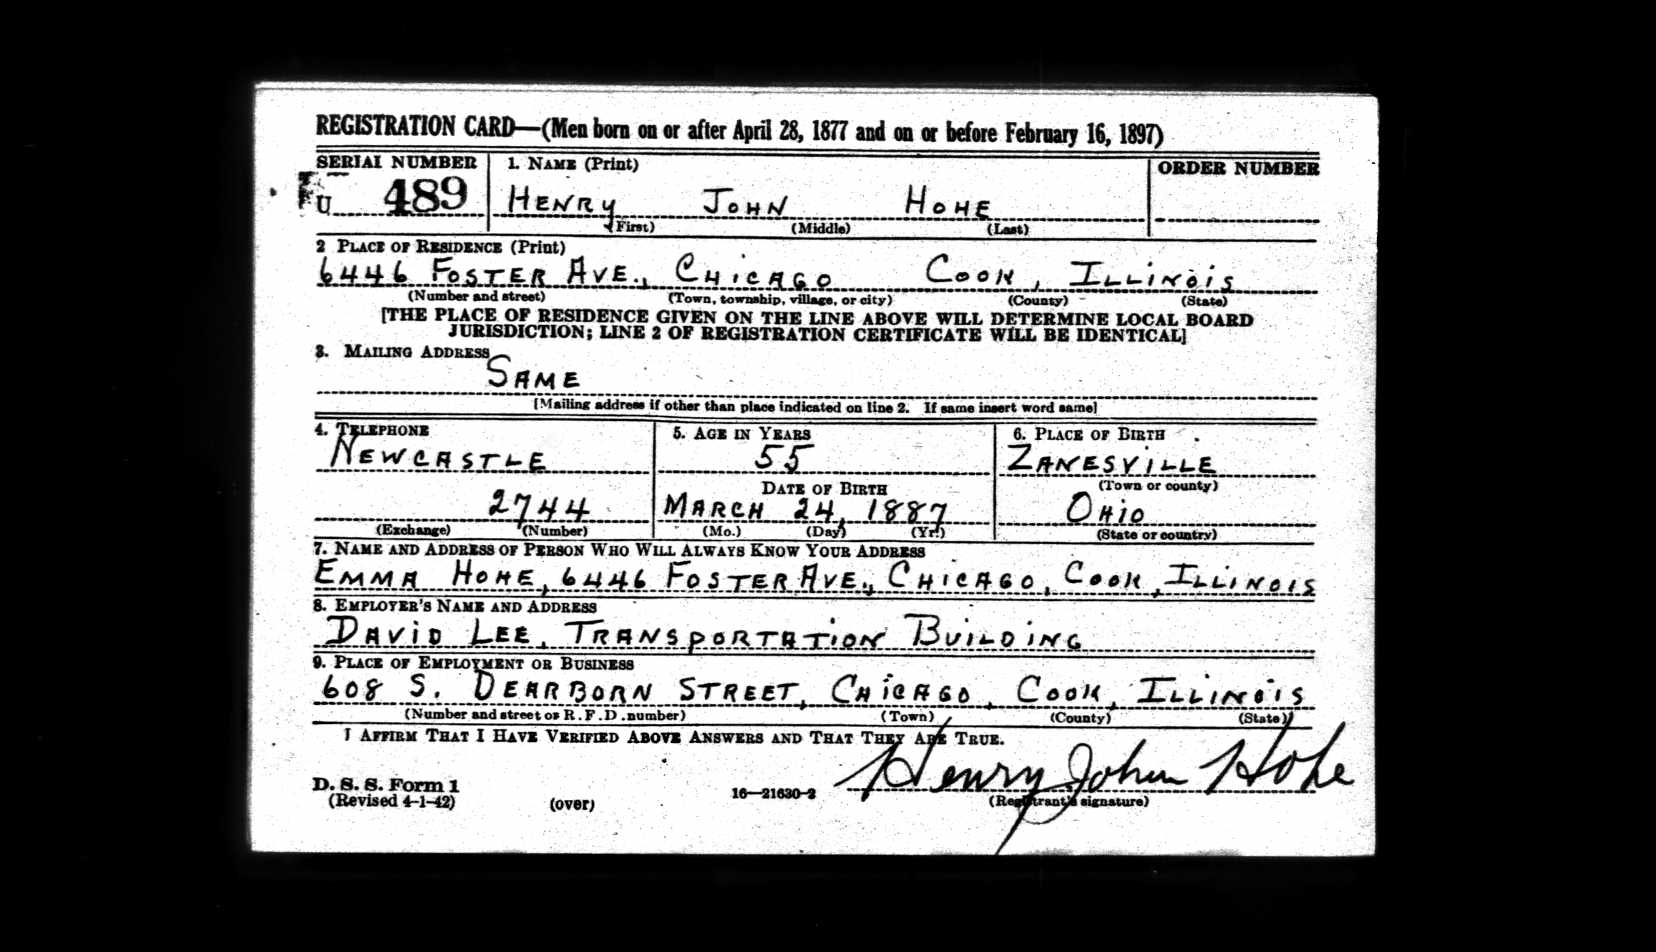 REGISTRATION CARD—(Men born on or after April 28, 1877 and on or before February 16, 1897)
SERIAL NUMBER 1. NAME (Print) ORDER NUMBER
U 489 HENRY JOHN HOHE
(First) (Middle) (Last)
2 PLACE OF RESIDENCE (Print)
6446 FOSTER AVE., CHICAGO COOK, ILLINOIS
(Number and street) (Town, township, village, or city) (County) (State)
[THE PLACE OF RESIDENCE GIVEN ON THE LINE ABOVE WILL DETERMINE LOCAL BOARD
JURISDICTION; LINE 2 OF REGISTRATION CERTIFICATE WILL BE IDENTICAL]
3. MAILING ADDRESS
SAME
[Mailing address if other than place indicated on line 2. If same insert word same]
4. TELEPHONE 5. AGE IN YEARS 6. PLACE OF BIRTH
NEWCASTLE 55 ZANESVILLE
DATE OF BIRTH (Town or county)
2744 MARCH 24, 1887 OHIO
(Exchange) (Number) (Mo.) (Day) (Yr.) (State or country)
7. NAME AND ADDRESS OF PERSON WHO WILL ALWAYS KNOW YOUR ADDRESS
EMMA HOHE, 6446 FOSTER AVE., CHICAGO, COOK, ILLINOIS
8. EMPLOYER'S NAME AND ADDRESS
DAVID LEE, TRANSPORTATION BUILDING
9. PLACE OF EMPLOYMENT OR BUSINESS
608 S. DEARBORN STREET, CHICAGO, COOK, ILLINOIS
(Number and street or R. F. D. number) (Town) (County) (State)
I AFFIRM THAT I HAVE VERIFIED ABOVE ANSWERS AND THAT THEY ARE TRUE.
Henry John Hohe
D. S. S. Form 1
(Revised 4-1-42) (over) 16—21630-2 (Registrant's signature)